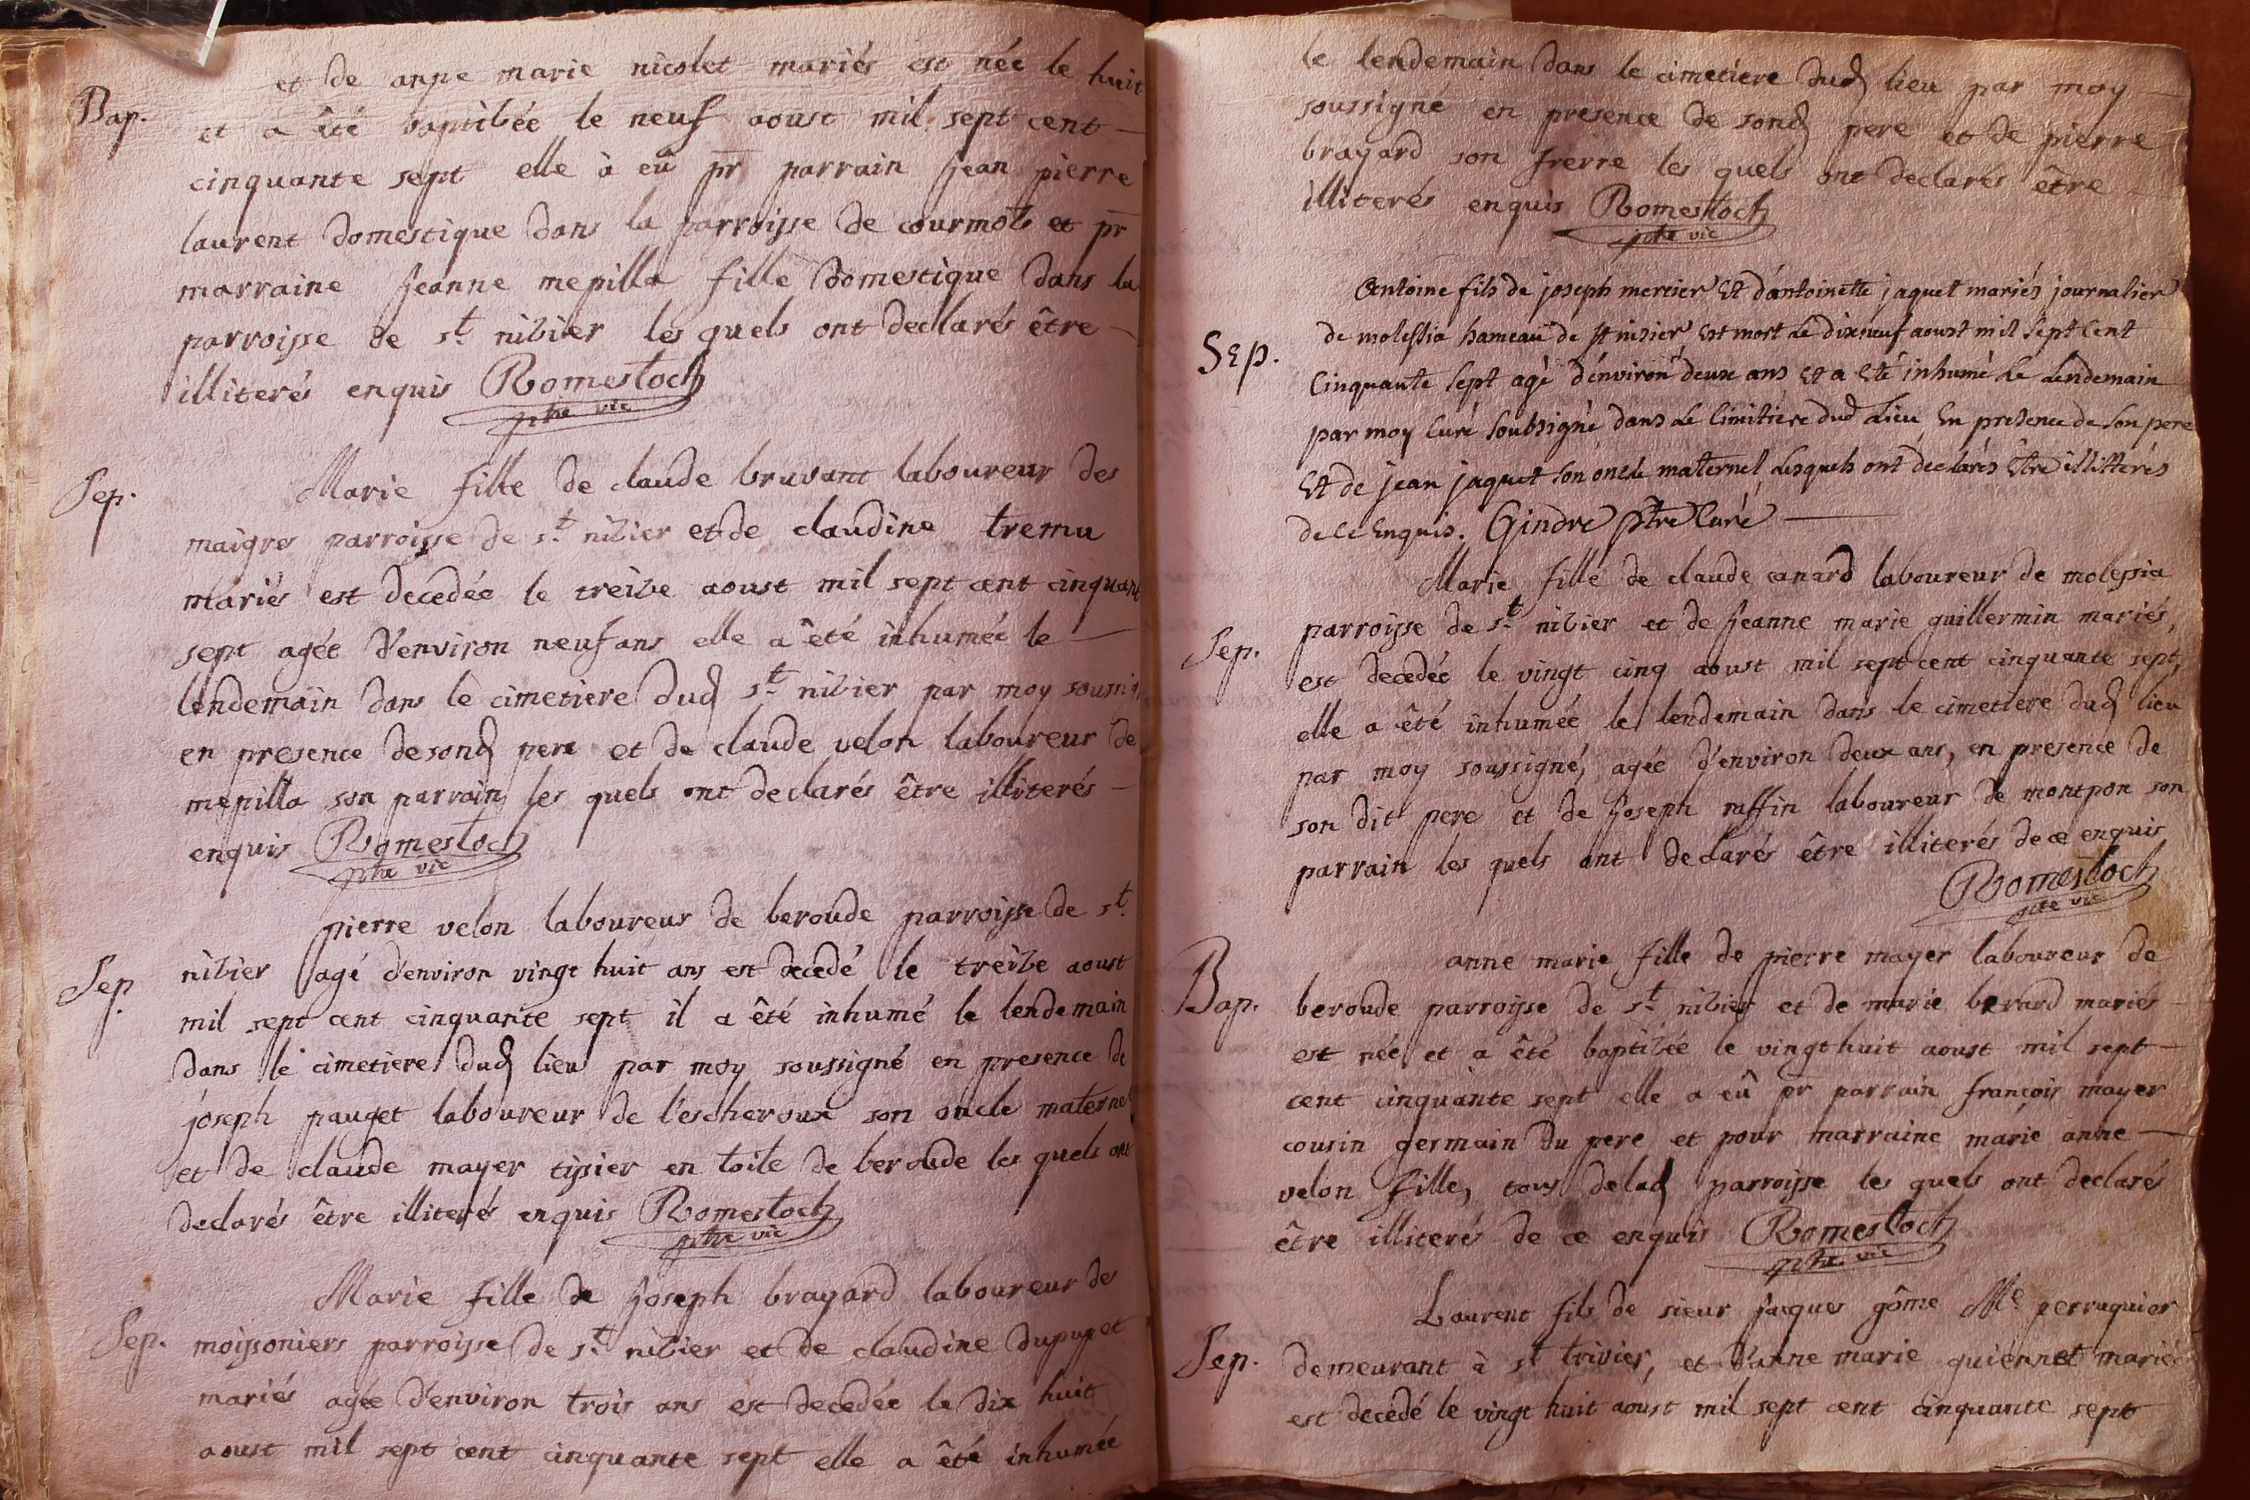 et de anne marie nicolet mariés est née le huit
Bap.
et a êté baptibée le neuf aoust mil sept cent
cinquante sept elle à eû pr parrain jean pierre
laurent domestique dans la parroisse de courmots et pr
marraine jeanne mepilla fille domestique dans la
parroisse de st nibier les quels ont declarés être
illiterés enquis Romestoch
ptre vic
Sep.
Marie fille de claude bruvant laboureur des
maigres parroisse de st nibier et de claudine tremu
mariés est decedée le treibe aoust mil sept cent cinquant
sept agée d'environ neuf ans elle a êté inhumée le
lendemain dans le cimetiere dud st nibier par moy soussig
en presence de sond pere et de claude velon laboureur de
mepilla son parrain les quels ont declarés être illiterés
enquis Romestoch
ptre vic
pierre velon laboureur de beroude parroisse de st
Sep
nibier agé d'environ vingt huit ans est decedé le treibe aoust
mil sept cent cinquante sept il a êté inhumé le lendemain
dans le cimetiere dud lieu par moy soussigné en presence de
joseph pauget laboureur de l'escheroux son oncle maternel
et de claude mayer tissier en toile de beroude les quels ont
declarés être illiterés enquis Romestoch
ptre vic
Marie fille de joseph brayard laboureur des
Sep.
moissoniers parroisse de st nibier et de claudine dupupet
mariés agée d'environ trois ans est decedée le dix huit
aoust mil sept cent cinquante sept elle a êté inhumée
le lendemain dans le cimetiere dud lieu par moy
soussigné en presence de sond pere et de pierre
brayard son frerre les quels ont declarés être
illiterés enquis Romestoch
ptre vic
Antoine fils de joseph mercier Et d'antoinette jaquet mariés journalier
de molessia hameau de st nisier Est mort Le dixneuf aoust mil Sept Cent
Sep.
Cinquante Sept agé d'environ deux ans Et a Eté inhumé Le Lendemain
par moy Curé Soubsigné dans Le Cimitiere dud Lieu En presence de Son pere
Et de jean jaquet Son oncle maternel Lesquels ont declarés Etre illitterés
de Ce Enquis. Gindre ptre Curé
Marie fille de claude canard laboureur de molessia
parroisse de st nibier et de jeanne marie guillermin mariés,
Sep.
est decedée le vingt cinq aoust mil sept cent cinquante sept,
elle a êté inhumée le lendemain dans le cimetiere dud lieu
par moy soussigné, agée d'environ deux ans, en presence de
son dit pere et de joseph ruffin laboureur de montpon son
parrain les quels ont declarés être illiterés de ce enquis
Romestoch
ptre vic
anne marie fille de pierre mayer laboureur de
Bap.
beroude parroisse de st nibier et de marie berard mariés
est née et a êté baptibée le vingt huit aoust mil sept
cent cinquante sept elle a eû pr parrain françois mayer
cousin germain du pere et pour marraine marie anne
velon fille, tous delad parroisse les quels ont declarés
être illiterés de ce enquis Romestoch
ptre vic
Laurent fils de sieur jacques gôme Me perruquier
Sep.
demeurant à st trivier, et d'anne marie quiennet mariés
est decédé le vingt huit aoust mil sept cent cinquante sept